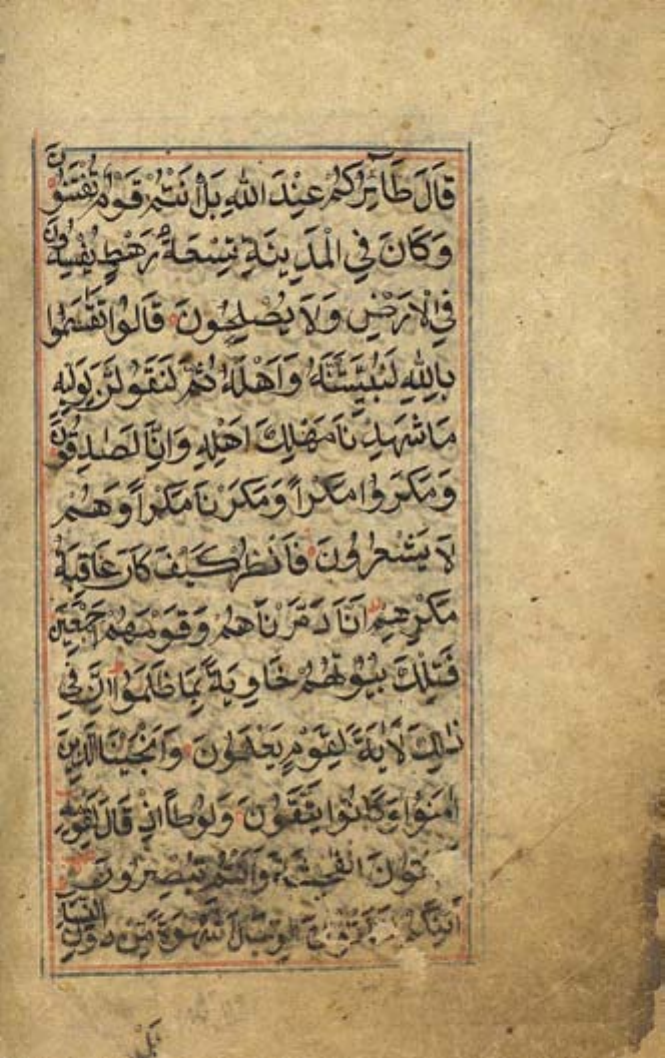 قَالَ طَآئِرُكُمْ عِنْدَ اللهِ بَلْ اَنْتُمْ قَوْمٌ تُفْتَنُوْنَ
وَكَانَ فِي الْمَدِينَةِ تِسْعَةُ رَهْطٍ يُفْسِدُوْنَ
فِي الْاَرْضِ وَلَا يُصْلِحُونَ قَالُوْا تَقَاسَمُوا
بِاللهِ لَنُبَيِّتَنَّهُ وَاَهْلَهُ ثُمَّ لَنَقُولَنَّ لِوَلِيِّهِ
مَا شَهِدْنَا مَهْلِكَ اَهْلِهِ وَاِنَّا لَصٰدِقُوْنَ
وَمَكَرُوا مَكْراً وَمَكَرْنَا مَكْراً وَهُمْ
لَا يَشْعُرُونَ فَانْظُرْ كَيْفَ كَانَ عَاقِبَةُ
مَكْرِهِمْ اَنَّا دَمَّرْنَاهُمْ وَقَوْمَهُمْ اَجْمَعِيْنَ
فَتِلْكَ بُيُوتُهُمْ خَاوِيَةً بِمَا ظَلَمُوْا اِنَّ فِي
ذٰلِكَ لَاٰيَةً لِقَوْمٍ يَعْلَمُونَ وَاَنْجَيْنَا الَّذِينَ
اٰمَنُوْا وَكَانُوا يَتَّقُونَ وَلُوطاً اِذْ قَالَ لِقَوْمِهِ
تَوُنَ الْفَاحِشَةَ وَاَنْتُمْ تُبْصِرُونَ
اَئِنَّكُمْ شَهْوَةً مِنْ دُوْنِ النِّسَآءِ
بَلْ